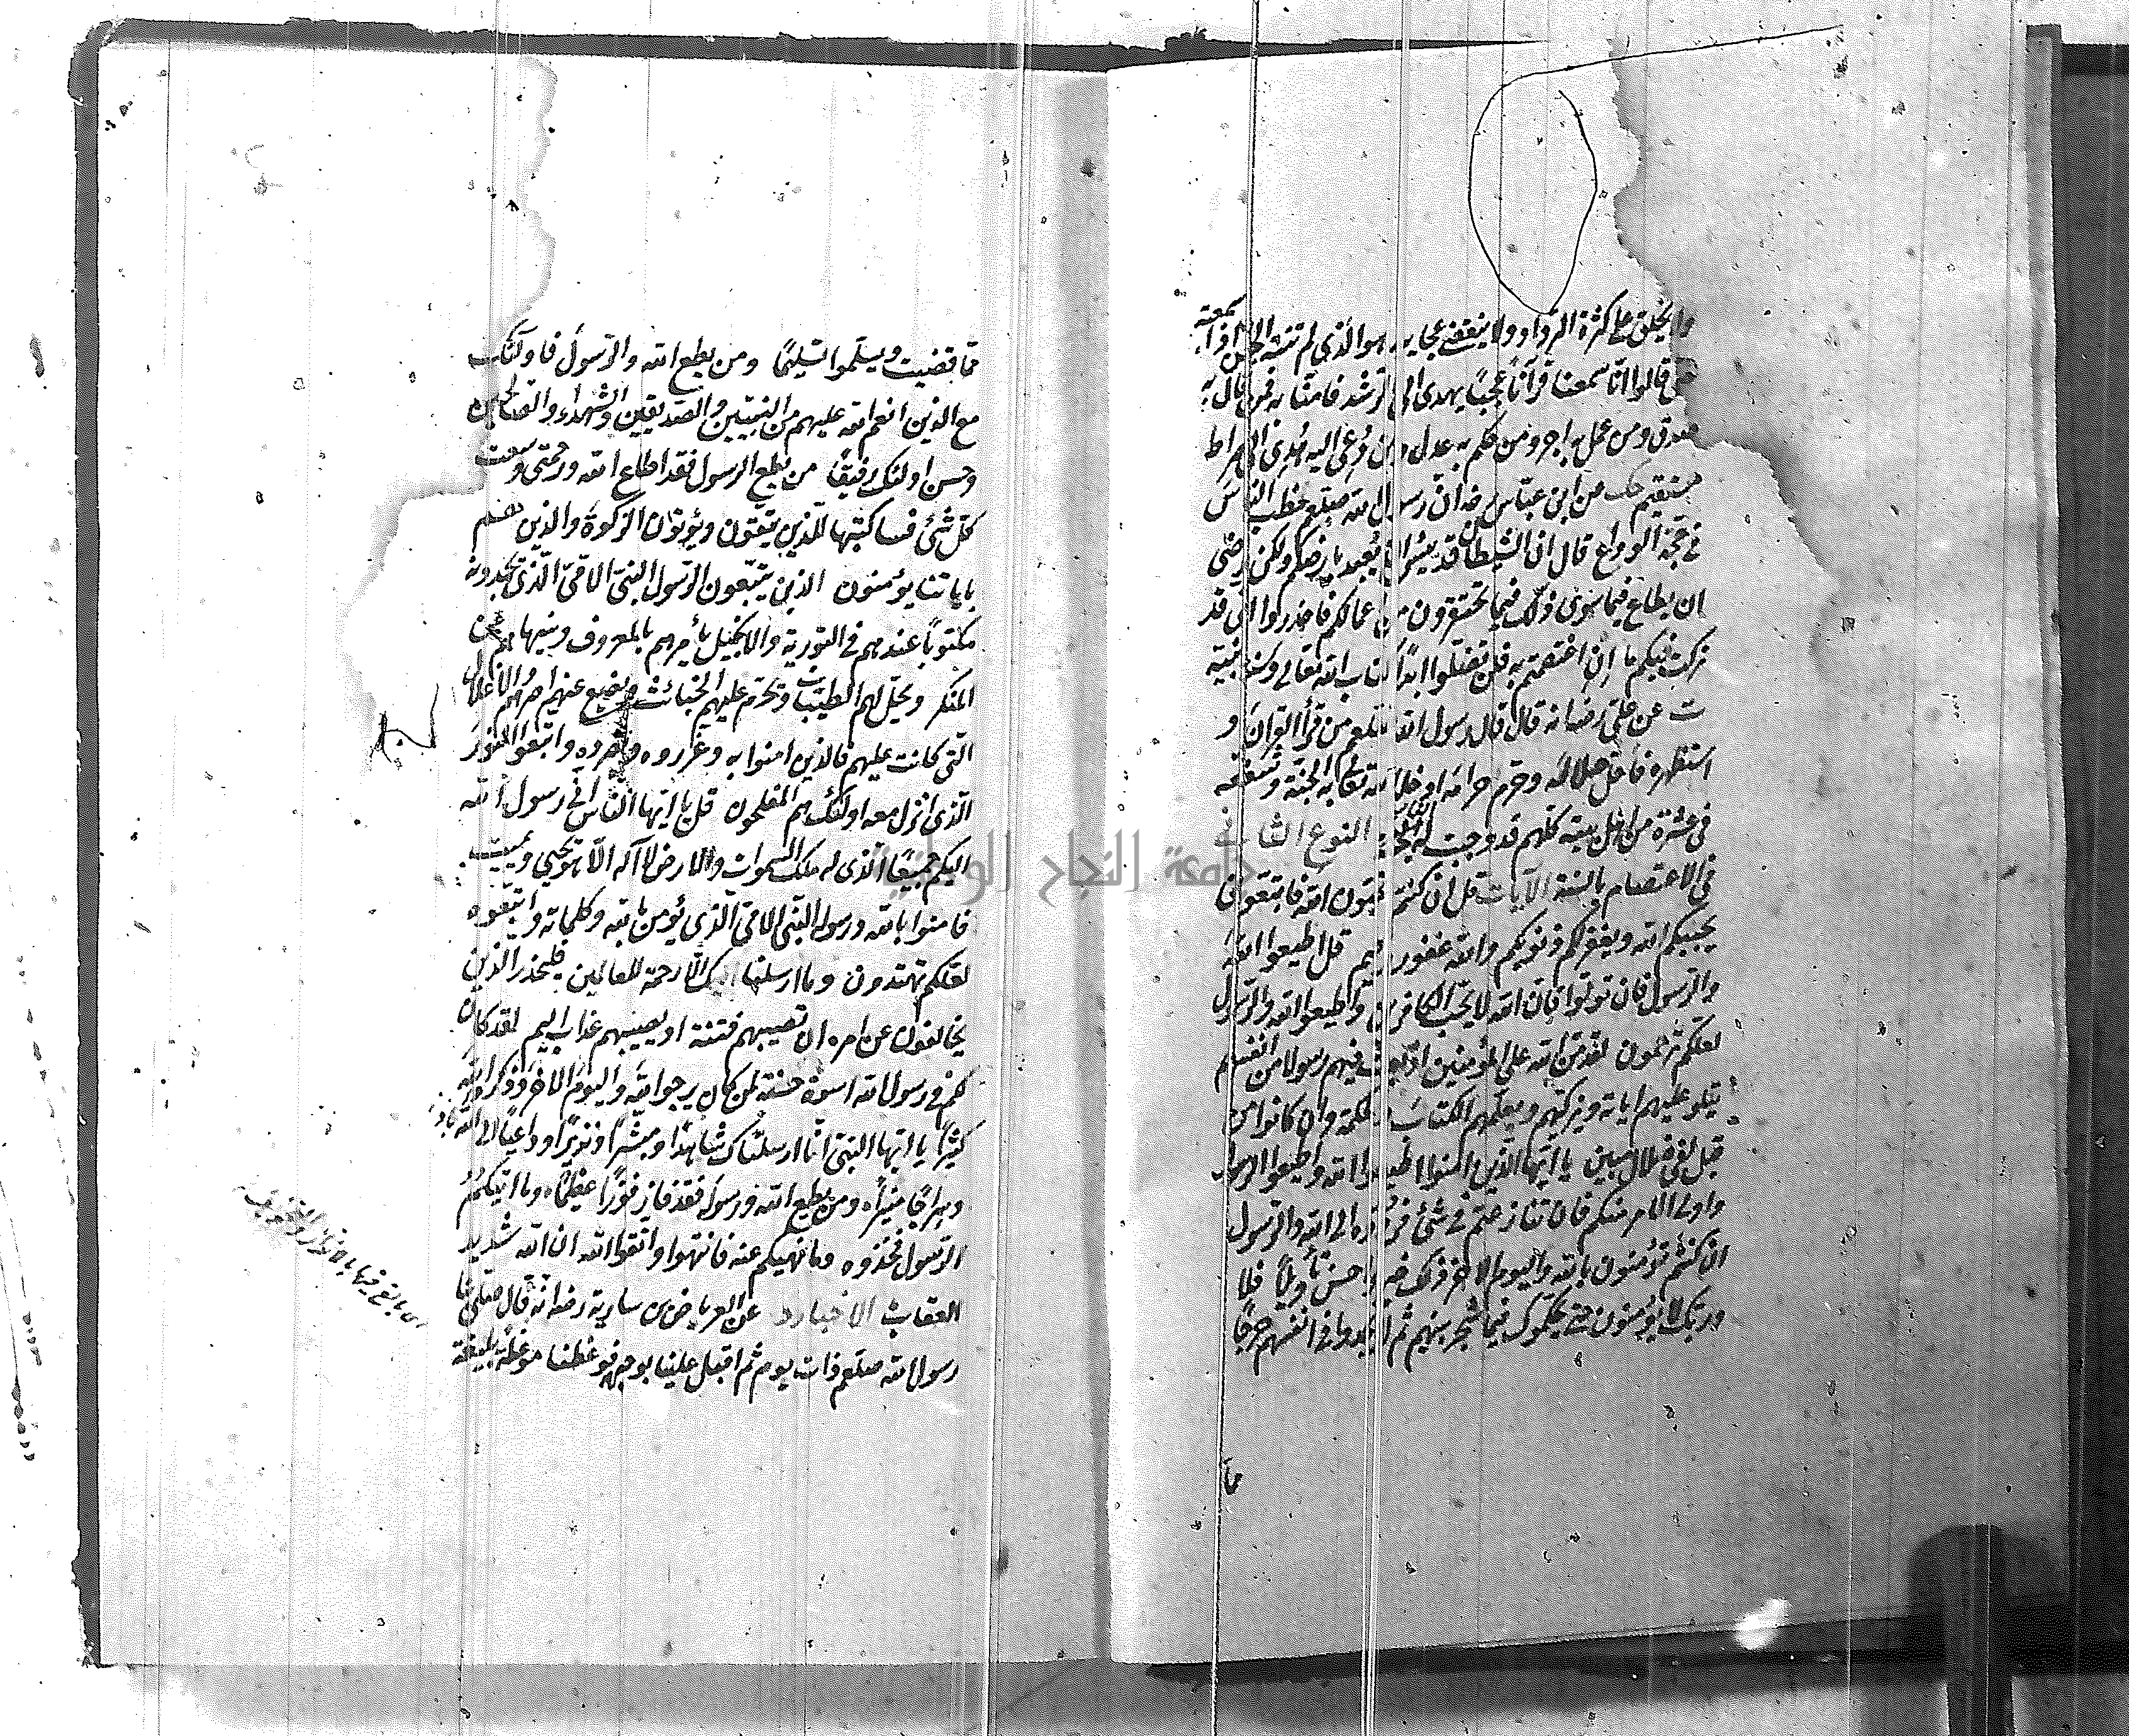 ولا يخلق على كثرة الرداد ولا ينقضي عجايبه هو الذي لم تنته الجن اذا سمعته
حتى قالوا انا سمعنا قرآنا عجبا يهدى الى الرشد فامنا به فمن قال به
صدق ومن عمل به اجر ومن حكم به عدل ومن دعى اليه هدى الى صراط
مستقيم حك عن ابن عباس رضه ان رسول الله صلعم خطب الناس
في حجة الوداع قال ان الشيطان قد يئس ان يعبد بارضكم ولكن رضى
ان يطاع فيما سوى ذلك فيما تحتقرون من اعمالكم فاحذروا انى قد
تركت فيكم ما ان اعتصمتم به فلن تضلوا ابدا كتاب الله تعالى وسنة نبيه
ت عن على رضه انه قال قال رسول الله صلعم من قرأ القرآن و
استظهره فاحل حلاله وحرم حرامه ادخله الله تعالى به الجنة وشفعه
في عشرة من اهل بيته كلهم قد وجبت له النار النوع الثانى
في الاعتصام بالسنة الآيات قل ان كنتم تحبون الله فاتبعونى
يحببكم الله ويغفر لكم ذنوبكم والله غفور رحيم قل اطيعوا الله
والرسول فان تولوا فان الله لا يحب الكافرين واطيعوا الله والرسول
لعلكم ترحمون لقد من الله على المؤمنين اذ بعث فيهم رسولا من انفسهم
يتلو عليهم اياته ويزكيهم ويعلمهم الكتاب والحكمة وان كانوا من
قبل لفي ضلال مبين يا ايها الذين امنوا اطيعوا الله واطيعوا الرسول
واولى الامر منكم فان تنازعتم في شئ فردوه الى الله والرسول
ان كنتم تؤمنون بالله واليوم الاخر ذلك خير واحسن تأويلا فلا
وربك لا يؤمنون حتى يحكموك فيما شجر بينهم ثم لا يجدوا في انفسهم حرجا
مما
مما قضيت ويسلموا تسليما ومن يطع الله والرسول فاولئك
مع الذين انعم الله عليهم من النبيين والصديقين والشهداء والصالحين
وحسن اولئك رفيقا من يطع الرسول فقد اطاع الله ورحمتى وسعت
كل شئ فساكتبها للذين يتقون ويؤتون الزكوة والذين هم
باياتنا يؤمنون الذين يتبعون الرسول النبى الامى الذى يجدونه
مكتوبا عندهم في التورية والانجيل يأمرهم بالمعروف وينهاهم عن
المنكر ويحل لهم الطيبات ويحرم عليهم الخبائث ويضع عنهم اصرهم والاغلال
التى كانت عليهم فالذين امنوا به وعزروه ونصروه واتبعوا النور
الذى انزل معه اولئك هم المفلحون قل يا ايها الناس انى رسول الله
اليكم جميعا الذى له ملك السموات والارض لا آله الا هو يحيى ويميت
فامنوا بالله ورسوله النبى الامى الذى يؤمن بالله وكلماته واتبعوه
لعلكم تهتدون وما ارسلناك الا رحمة للعالمين فليحذر الذين
يخالفون عن امره ان تصيبهم فتنة او يصيبهم عذاب اليم لقد كان
لكم في رسول الله اسوة حسنة لمن كان يرجوا الله واليوم الاخر وذكر الله
كثيرا يا ايها النبى انا ارسلناك شاهدا ومبشرا ونذيرا وداعيا الى الله باذنه
وسراجا منيرا ومن يطع الله ورسوله فقد فاز فوزا عظيما وما اتيكم
الرسول فخذوه وما نهيكم عنه فانتهوا واتقوا الله ان الله شديد
العقاب الاخبار د عن العرباض بن سارية رضه انه قال صلى بنا
رسول الله صلعم ذات يوم ثم اقبل علينا بوجهه فوعظنا موعظة بليغة
جامعة النجاح الوطنية